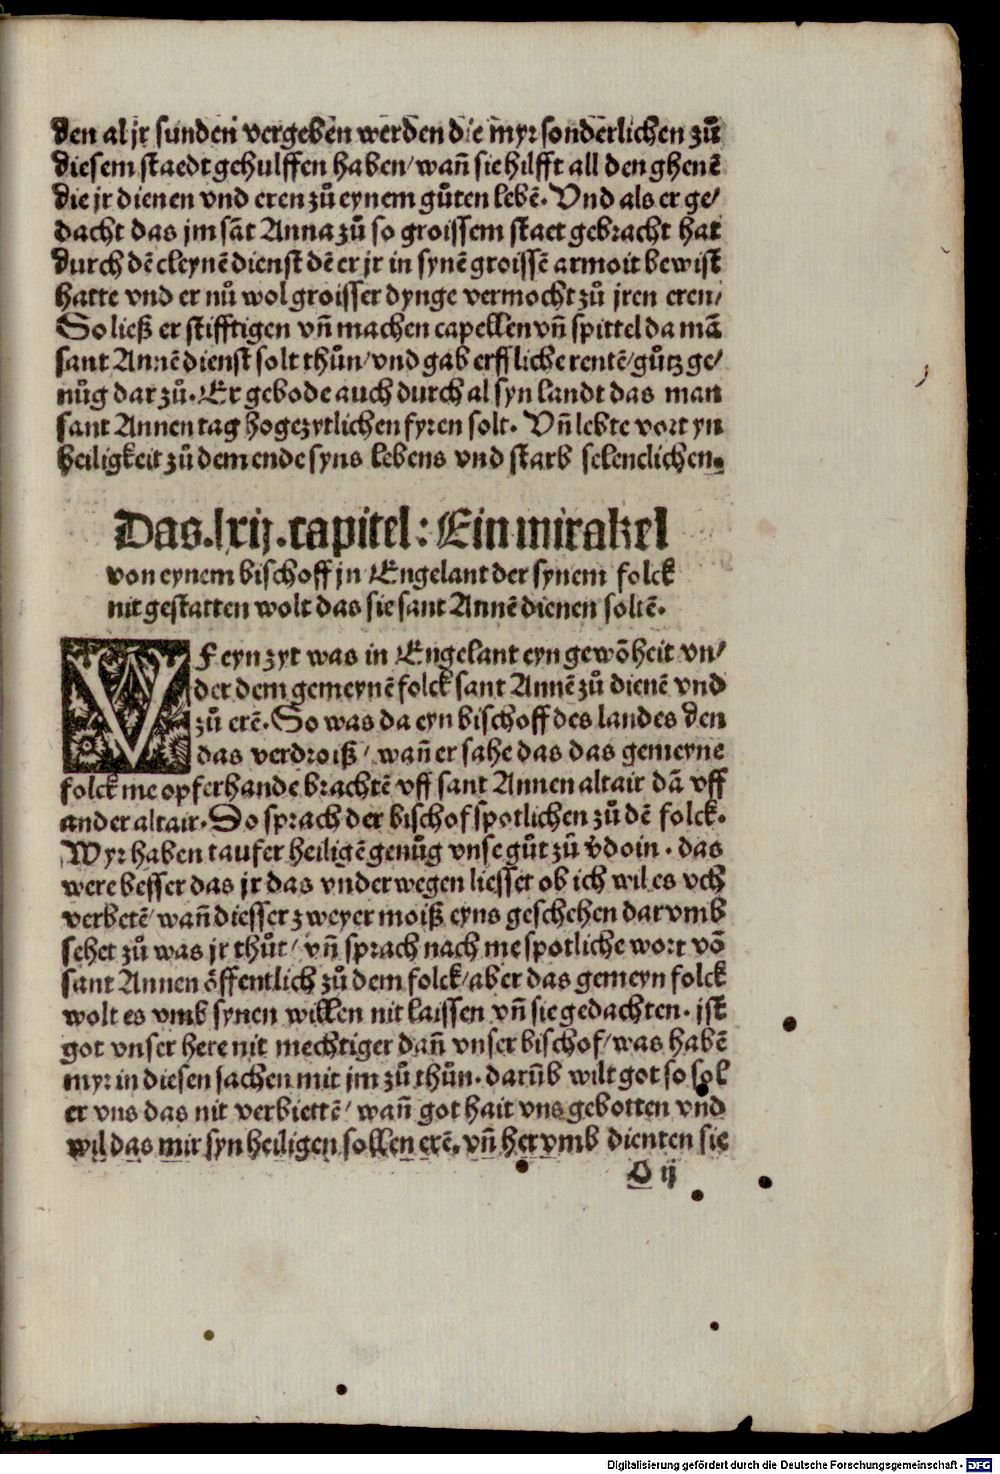 den al jr sunden vergeben werden die myr sonderlichen zů
diesem staedt gehulffen haben/ wañ sie hilfft all den ghenē
die jr dienen vnd eren zů eynem gůten lebē. Vnd als er ge/
dacht das jm sāt Anna zů so groissem staet gebracht hat
durch dē cleynē dienst dē er jr in synē groissē armoit bewist
hatte vnd er nů wol groisser dynge vermocht zů jren eren/
So ließ er stifftigen vñ machen capellen vñ spittel da mā
sant Annē dienst solt thůn/ vnd gab erffliche rentē/ gůtz ge/
nůg dar zů. Er gebode auch durch al syn landt das man
sant Annen tag hogezytlichen fyren solt. Vñ lebte vort yn
heiligkeit zů dem ende syns lebens vnd starb selenclichen.
Das .lxij. capitel: Ein mirakel
von eynem bischoff jn Engelant der synem folck
nit gestatten wolt das sie sant Annē dienen soltē.
VF eyn zyt was in Engelant eyn gewōheit vn/
der dem gemeynē folck sant Annē zů dienē vnd
zů erē. So was da eyn bischoff des landes den
das verdroiß/ wañ er sahe das das gemeyne
folck me opferhande brachtē vff sant Annen altair dā vff
ander altair. Do sprach der bischof spotlichen zů dē folck.
Wyr haben taufer heiligē genůg vnse gůt zů v̄doin. das
were besser das jr das vnder wegen liesset ob ich wil es vch
verbetē/ wañ diesser zweyer moiß eyns geschehen dar vmb
sehet zů was jr thůt/ vñ sprach nach me spotliche wort vō
sant Annen öffentlich zů dem folck/ aber das gemeyn folck
wolt es vmb synen willen nit laissen vñ sie gedachten. jst
got vnser here nit mechtiger dañ vnser bischof/ was habē
myr in diesen sachen mit jm zů thůn. darūb wilt got so sol
er vns das nit verbiettē/ wañ got hait vns gebotten vnd
wil das mir syn heiligen sollen erē. vñ her vmb dienten sie
O ij
Digitalisierung gefördert durch die Deutsche Forschungsgemeinschaft - DFG